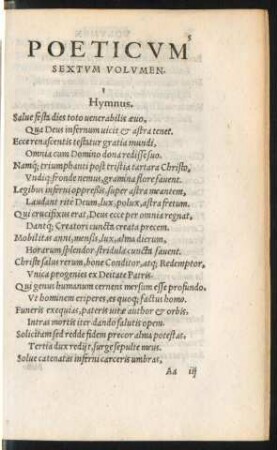 5
POETICVM
SEXTVM VOLVMEN.
1
Hymnus.
Salue festa dies toto uenerabilis æuo,
Qua Deus infernum uicit & astra tenet.
Ecce renascentis testatur gratia mundi,
Omnia cum Domino dona redisse suo.
Namq; triumphanti post tristia tartara Christo,
Vndiq; fronde nemus, gramina flore fauent.
Legibus inferni oppressis, super astra meantem,
Laudant rite Deum, lux, polus, astra fretum.
Qui crucifixus erat, Deus ecce per omnia regnat,
Dantq; Creatori cuncta creata precem.
Mobilitas anni, mensis, lux, alma dierum,
Horarum splendor, stridula cuncta fauent.
Christe salus rerum, bone Conditor, atq; Redemptor,
Vnica progenies ex Deitate Patris.
Qui genus humanum cernens mersum esse profundo,
Vt hominem eriperes, es quoq; factus homo.
Funeris exequias, pateris uitæ author & orbis,
Intras mortis iter dando salutis opem.
Solicitam sed redde fidem precor alma potestas,
Tertia lux redijt, surge sepulte meus.
Solue catenatas inferni carceris umbras,
Aa iij